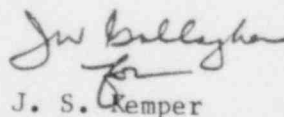 JW Gallagher
for
J. S. Kemper